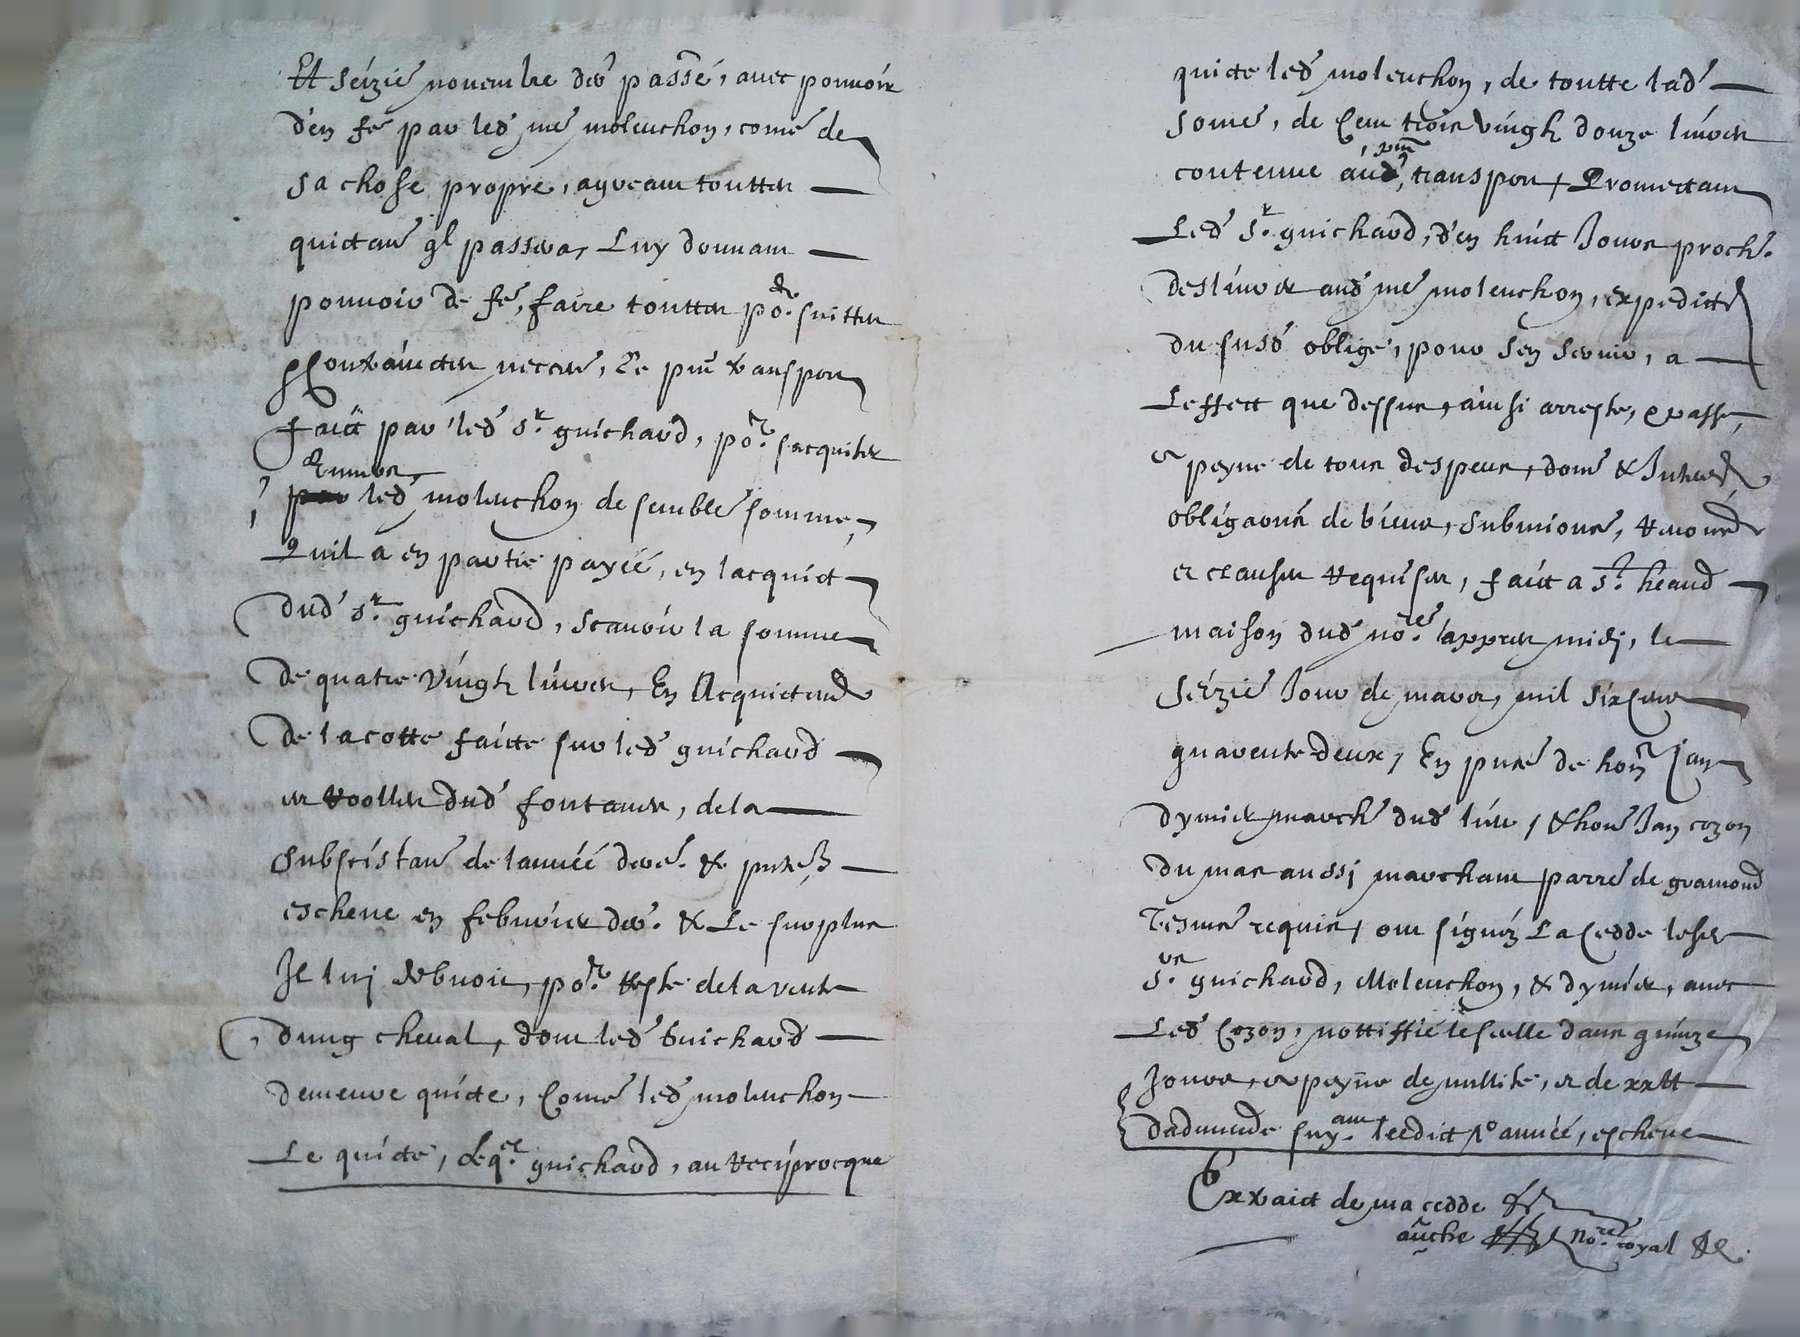 Et seizie novembre der passé, avec pouvoir
d'en fe par led me moleuchon, come de
sa chose propre, ayveant touttes
quictan ql passera, Luy donnant
pouvoir de fe, faire touttes por suittes
contrainctes necres, Le pnt transport
faict par led sr guichard, por sacquiter
Envers
led moleuchon de semble somme,
Quil a en partie payée, en lacquict
dud sr guichard, scavoir la somme
de quatre vingh livres, En Acquictand
de la cotte faicte sur led guichard
es roolles dud fontanes, de la
subsistan de lannéé dere. & pnte
escheue en febvrier der. & Le surplus
Il luy debvoit, por reste de la vente
dung cheval, dont led Guichard
demeure quicte, Come led moleuchon
Le quicte, & guichard, au reciprocque
quicte led moleuchon, de toutte lad
some, de Cent trois vingh douze livres
pnt
contenue aud, transport, Promettant
Led sr guichard, d'en huict Jours proch.
deslivrer aud me moleuchon, expedicte
du susd obligé, pour sen servir, a
Leffect que dessus, ainsi arresté, & passé,
er peyne de tous despens, dom & Interest
obligaons de biens, submions, renond
et clauses requises, faict a st. heand
maison dud nore. appres midj, le
seizie Jour de mars, mil sixCens
quarente deux, En pnce de hon Jan
dymier march dud lieu, & hon Jan cozon
du mas aussj marchant parre de gramond
Tesmes requis, ont signéz La Cedde lesd
srs guichard, Moleuchon, & dymier, avec
Led Cozon, nottiffié le scelle dans quinze
Jours, er peyne de nullité, et de xxtt
dadmende suyant leedict 1o année, escheue
Extraict de ma cedde
nore royal